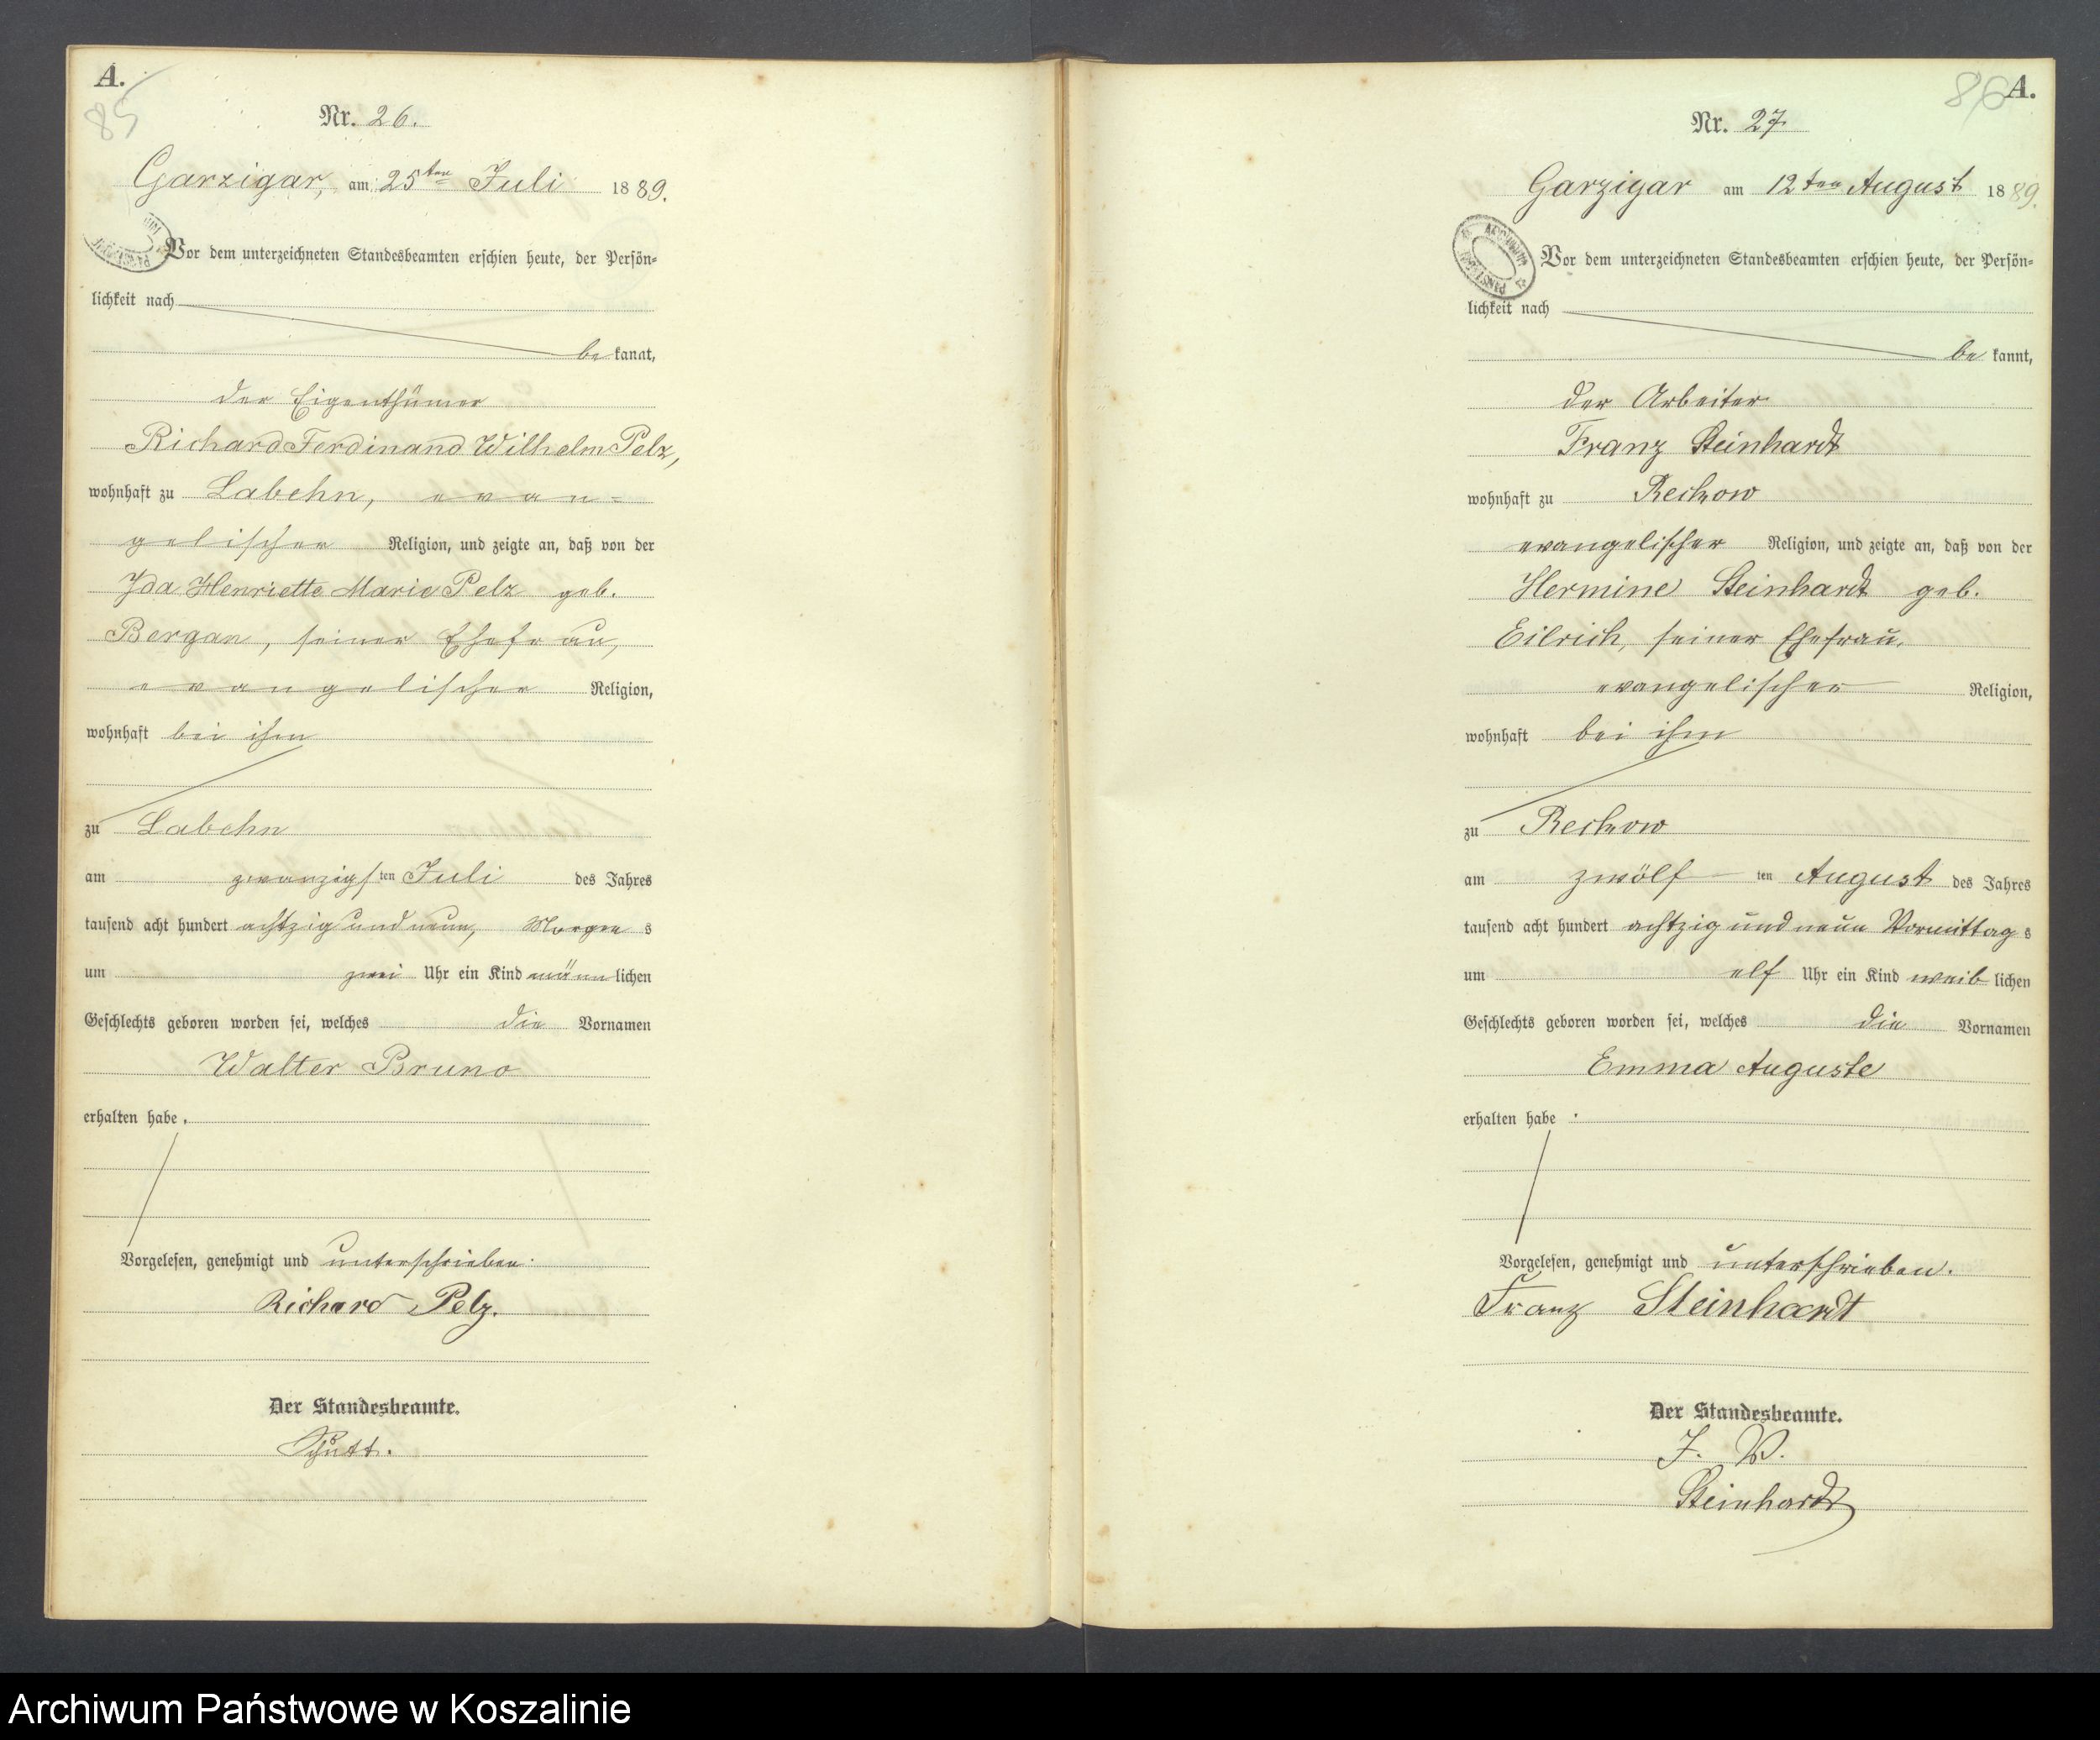 A.
85
Nr. 26.
Garzigar, am 25ten Juli 1889.
Vor dem unterzeichneten Standesbeamten erschien heute, der Persön=
lichkeit nach
be kannt,
der Eigenthümer
Richard Ferdinand Wilhelm Pelz,
wohnhaft zu Labehn, evan=
gelischer Religion, und zeigte an, daß von der
Ida Henriette Marie Pelz geb.
Bergan, seiner Ehefrau,
evangelischer Religion,
wohnhaft bei ihm
zu Labehn
am zwanzigsten Juli des Jahres
tausend acht hundert achtzig und neun, Morgens
um zwei Uhr ein Kind männlichen
Geschlechts geboren worden sei, welches die Vornamen
Walter Bruno
erhalten habe.
Vorgelesen, genehmigt und unterschrieben.
Richard Pelz.
Der Standesbeamte.
Schütt.
86 A.
Nr. 27
Garzigar am 12ten August 1889.
ARCHIWUM PAŃSTWOWE
Vor dem unterzeichneten Standesbeamten erschien heute, der Persön=
lichkeit nach
be kannt,
der Arbeiter
Franz Steinhardt
wohnhaft zu Reckow
evangelischer Religion, und zeigte an, daß von der
Hermine Steinhardt geb.
Eilrich, seiner Ehefrau,
evangelischer Religion,
wohnhaft bei ihm
zu Reckow
am zwölften August des Jahres
tausend acht hundert achtzig und neun Vormittags
um elf Uhr ein Kind weiblichen
Geschlechts geboren worden sei, welches die Vornamen
Emma Auguste
erhalten habe.
Vorgelesen, genehmigt und unterschrieben.
Franz Steinhardt
Der Standesbeamte.
J. V.
Steinhardt
Archiwum Państwowe w Koszalinie